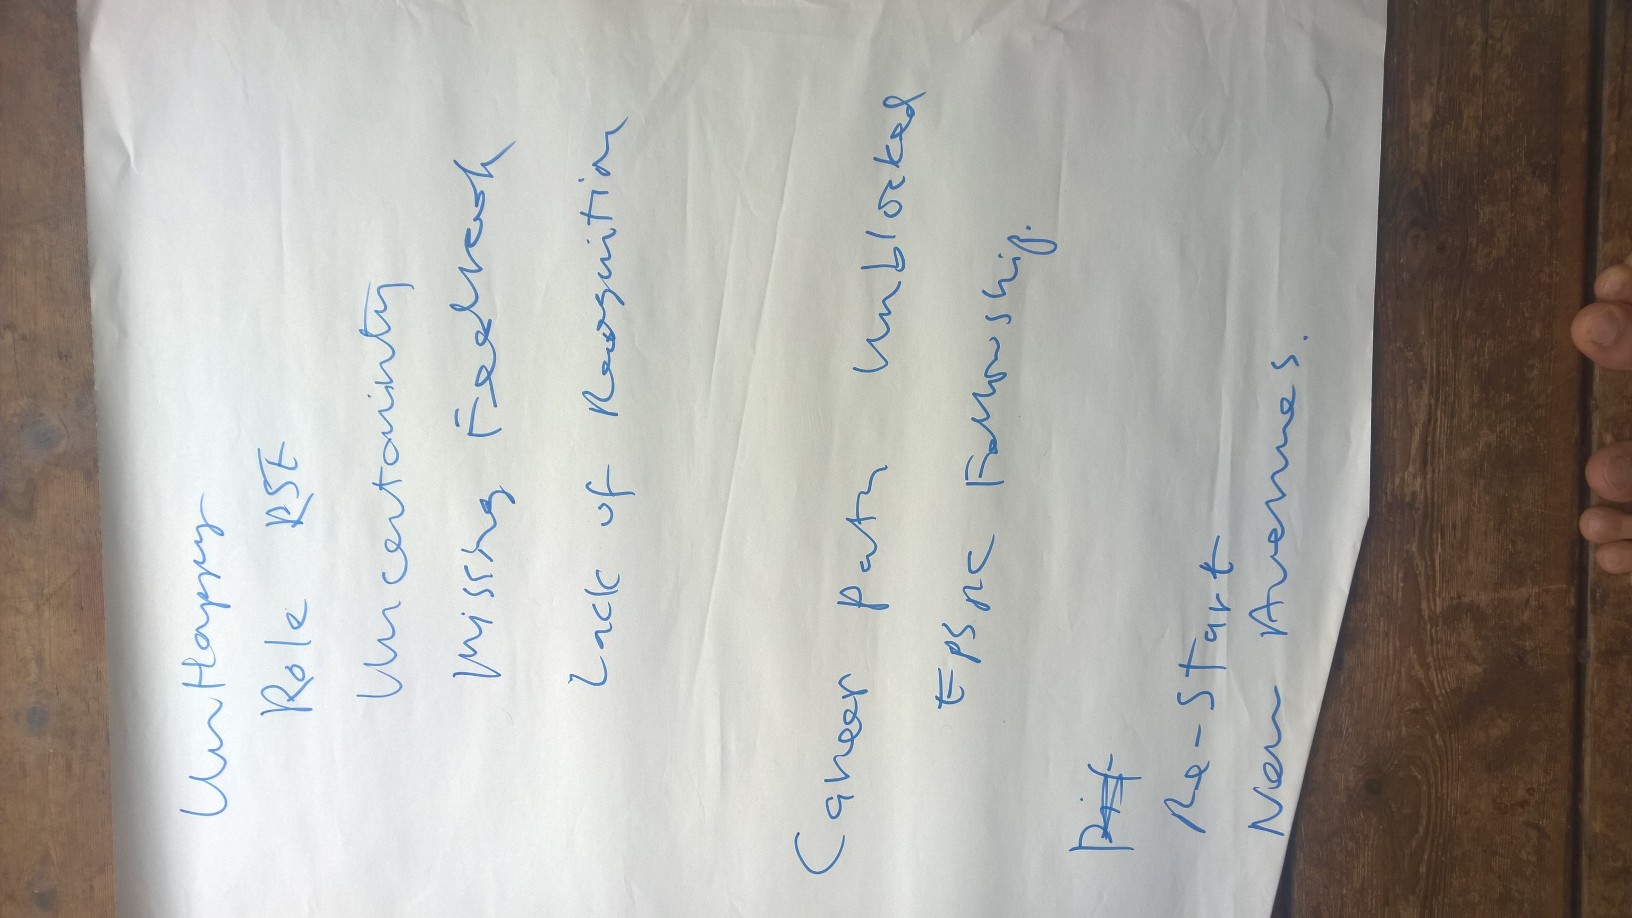 UnHappy
Role RSE
Uncertainty
Missing Feedback
Lack of Recognition
Career Path Unblocked
EPSRC Fellowship.
Re-start
New Avenues.